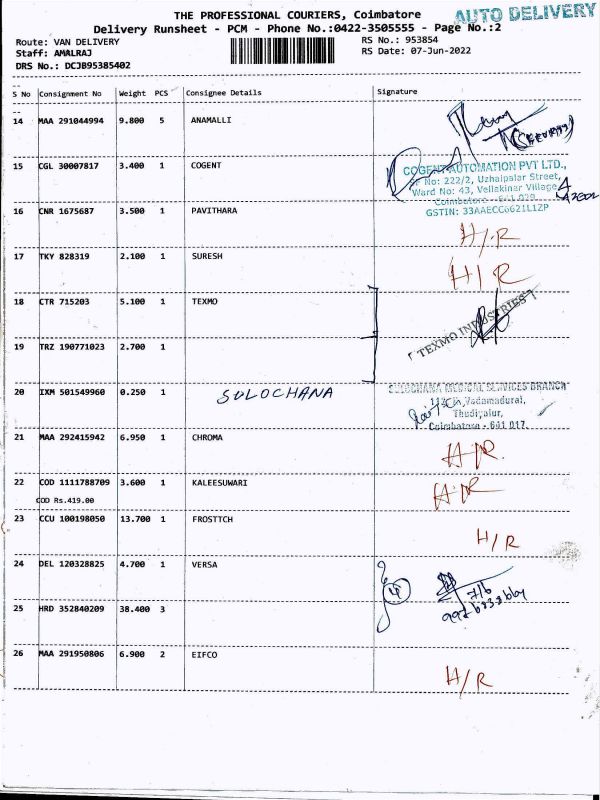 THE PROFESSIONAL COURIERS, Coimbatore
AUTO DELIVERY
Delivery Runsheet - PCM - Phone No.:0422-3505555 - Page No.:2
Route: VAN DELIVERY
RS No.: 953854
Staff: AMALRAJ
RS Date: 07-Jun-2022
DRS No.: DCJB95385402
S No Consignment No Weight PCS Consignee Details Signature
14 MAA 291044994 9.800 5 ANAMALLI
15 CGL 30007817 3.400 1 COGENT
COGENT AUTOMATION PVT LTD.,
No: 222/2, Uzhalpalar Street,
Ward No: 43, Vellakinar Village
Coimbatore - 641 029
GSTIN: 33AAECC6621L1ZP
16 CNR 1675687 3.500 1 PAVITHARA
H/R
17 TKY 828319 2.100 1 SURESH
H/R
18 CTR 715203 5.100 1 TEXMO
TEXMO INDUSTRIES
19 TRZ 190771023 2.700 1
20 IXM 501549960 0.250 1 SULOCHANA
SULOCHANA MEDICAL SERVICES BRANCH
Vadamadurai,
Thudiyalur,
Coimbatore - 641 017.
21 MAA 292415942 6.950 1 CHROMA
H/R.
22 COD 1111788709 3.600 1 KALEESUWARI
H/R
COD Rs.419.00
23 CCU 100198050 13.700 1 FROSTTCH
H/R
24 DEL 120328825 4.700 1 VERSA
25 HRD 352840209 38.400 3
26 MAA 291950806 6.900 2 EIFCO
H/R